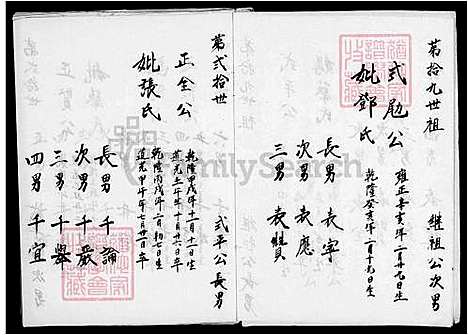 第拾九世祖
繼祖公次男
式勉公
雍正辛亥年二月十九日生
妣鄧氏
乾隆癸亥年二月十九日生
長男 表寧
次男 表應
三男 表贊
第貳拾世
式平公長男
正全公
乾隆甲戌年十一月十一日生
道光壬午年十月廿六日卒
妣張氏
乾隆丙戌年二月初七日生
道光甲午年七月一日卒
長男 千諭
次男 千嚴
三男 千舉
四男 千宜
FamilySearch